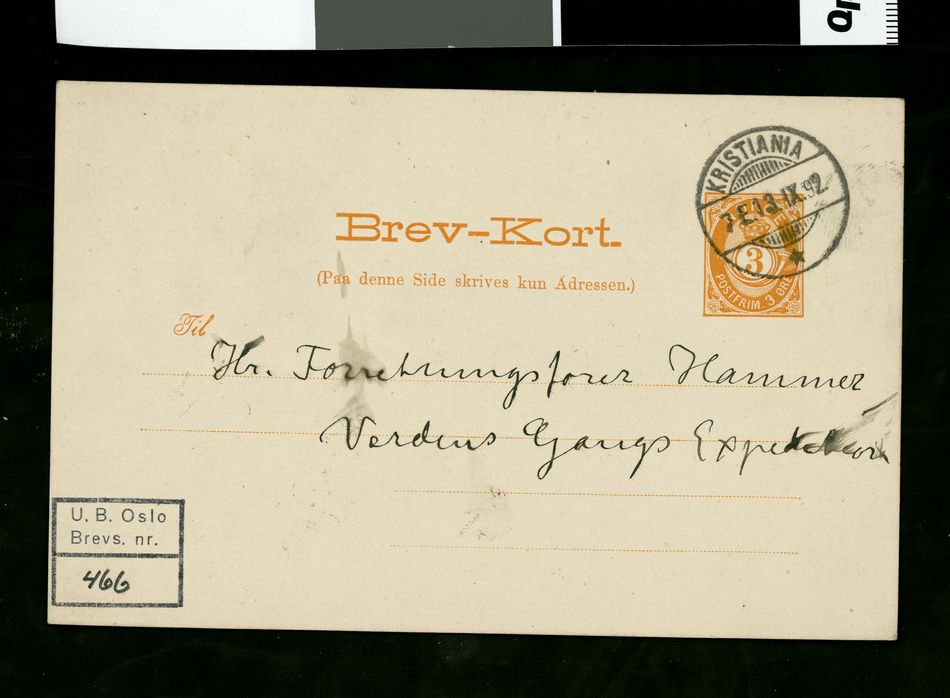 KRISTIANIA
7-E 13 IX 92
Brev-Kort.
3
POSTFRIM. 3 ØRE
(Paa denne Side skrives kun Adressen.)
Til
Hr. Forretningsfører Hammer
Verdens Gangs Expedition
U. B. Oslo
Brevs. nr.
466